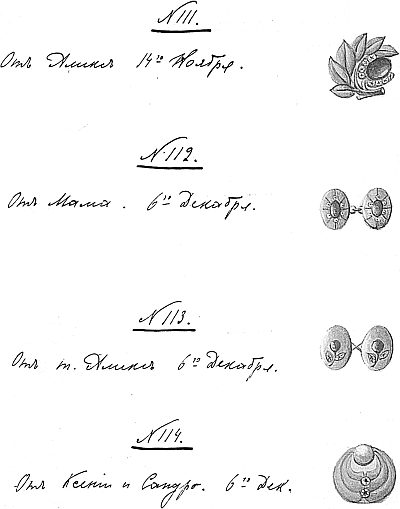 N 111.
Отъ Аликсъ 14го Ноября.
N 112.
Отъ Мама. 6го Декабря.
N 113.
Отъ т. Аликсъ 6го Декабря.
N 114.
Отъ Ксеніи и Сандро. 6го Дек.